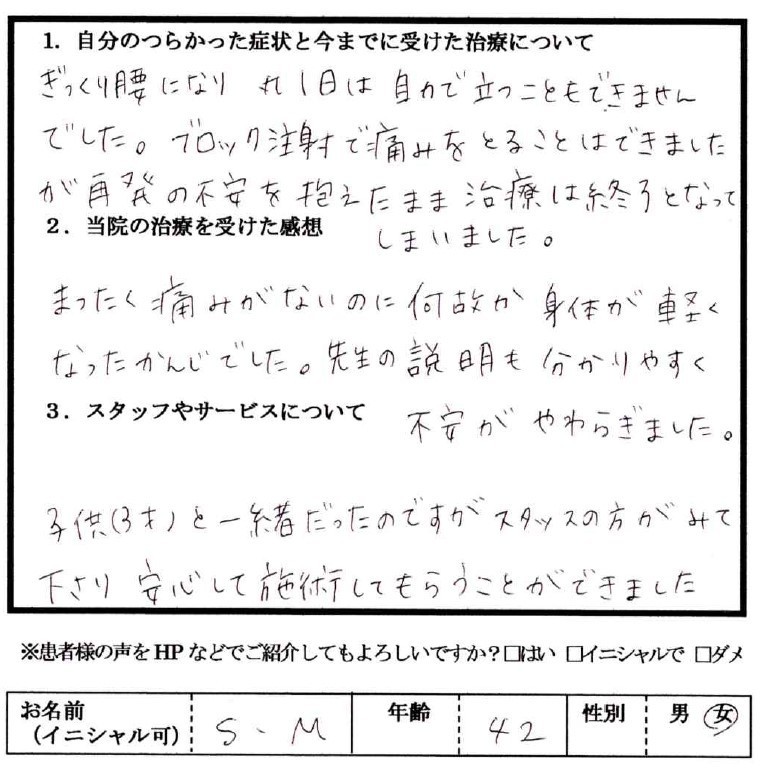 1. 自分のつらかった症状と今までに受けた治療について
ぎっくり腰になり 丸1日は自力で立つこともできません
でした。ブロック注射で痛みをとることはできました
が再発の不安を抱えたまま治療は終了となって
しまいました。
2. 当院の治療を受けた感想
まったく痛みがないのに何故か身体が軽く
なったかんじでした。先生の説明も分かりやすく
不安がやわらぎました。
3. スタッフやサービスについて
子供(3才)と一緒だったのですがスタッスの方がみて
下さり 安心して施術してもらうことができました
※患者様の声をHPなどでご紹介してもよろしいですか?□はい □イニシャルで □ダメ
お名前 (イニシャル可) S・M 年齢 42 性別 男 女